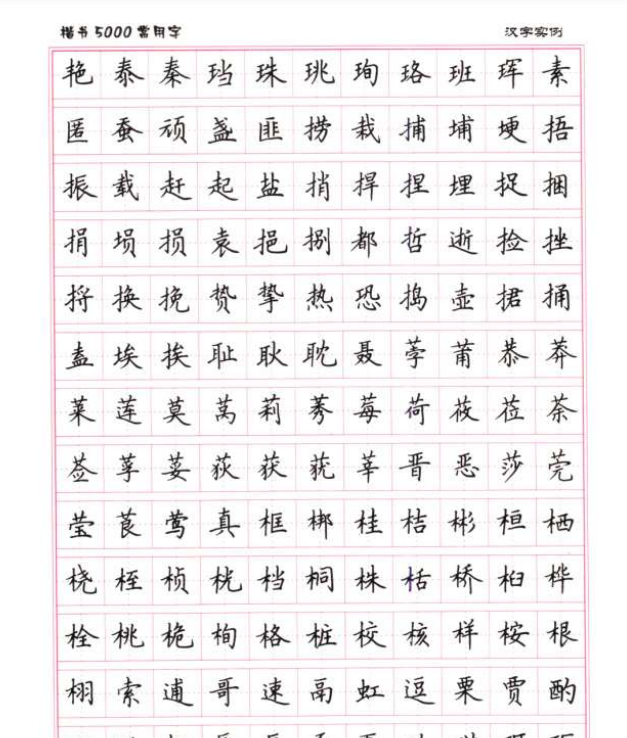 楷书5000常用字 汉字实例
艳泰秦珰珠珧珣珞班珲素
匿蚕顽盏匪捞栽捕埔埂捂
振载赶起盐捎捍捏埋捉捆
捐埙损袁挹捌都哲逝捡挫
捋换挽贽挚热恐捣壶捃捅
盍埃挨耻耿耽聂莩莆恭莽
莱莲莫莴莉莠莓荷莜莅荼
莶莩荽荻获莸莘晋恶莎莞
莹莨莺真框梆桂桔彬桓栖
桡桎桢桄档桐株栝桥桕桦
栓桃桅栒格桩校核样桉根
栩索逋哥速鬲虹逗栗贾酌